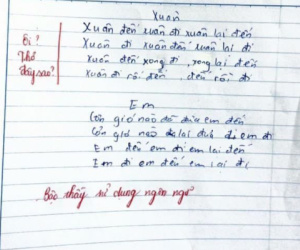 Xuân
Xuân đến xuân đi xuân lại đến
Xuân đi xuân đến xuân lại đi
Xuân đến xong đi, xong lại đến
Xuân đi rồi đến, đến rồi đi
Ơi?
Thơ
đây sao?
Em
Cơn gió nào đã đưa em đến
Cơn gió nào lại đưa em đi
Em đến em đi em lại đến
Em đi em đến em lại đi
thấy sử dụng ngôn ngữ